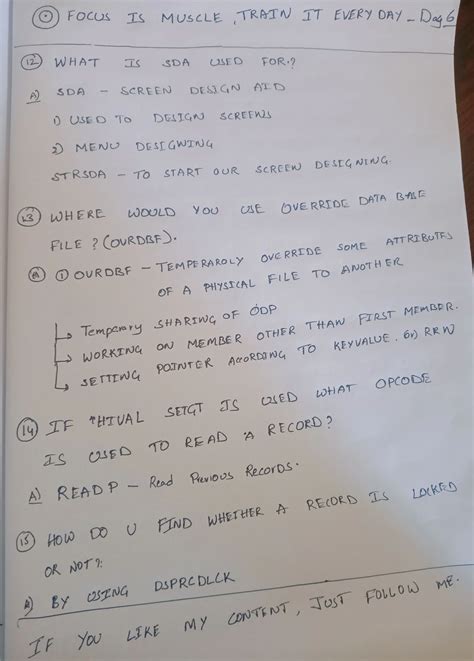 FOCUS IS MUSCLE, TRAIN IT EVERY DAY - Day 6
12 WHAT IS SDA USED FOR?
A) SDA - SCREEN DESIGN AID
1) USED TO DESIGN SCREENS
2) MENU DESIGNING
STRSDA - TO START OUR SCREEN DESIGNING.
13 WHERE WOULD YOU USE OVERRIDE DATA BASE
FILE? (OVRDBF).
A 1 OVRDBF - TEMPERAROLY OVERRIDE SOME ATTRIBUTES
OF A PHYSICAL FILE TO ANOTHER
→ Temporary SHARING OF ODP
→ WORKING ON MEMBER OTHER THAN FIRST MEMBER.
→ SETTING POINTER ACCORDING TO KEYVALUE. Or) RRN
14 IF *HIVAL SETGT IS USED WHAT OPCODE
IS USED TO READ A RECORD?
A) READP - Read Previous Records.
15 HOW DO U FIND WHETHER A RECORD IS LOCKED
OR NOT?:
A) BY USING DSPRCDLCK
IF YOU LIKE MY CONTENT, JUST FOLLOW ME.